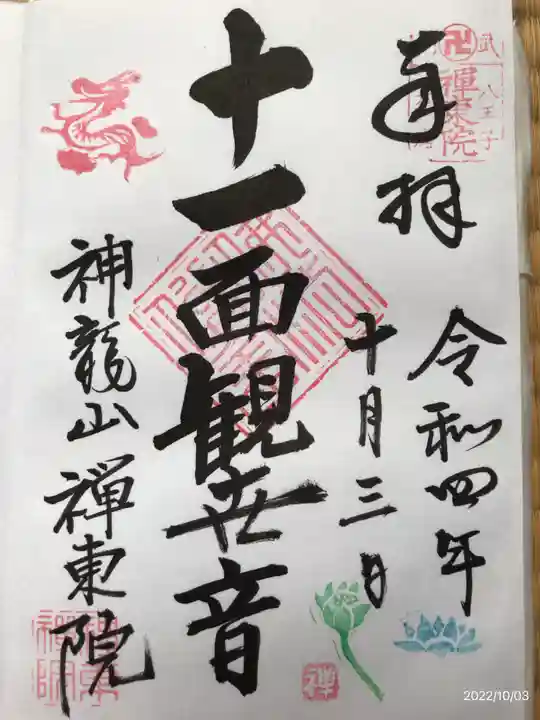 奉拝
令和四年
十月三日
十一面観世音
神龍山 禅東院
武
八王子
禅東院
禅
2022/10/03